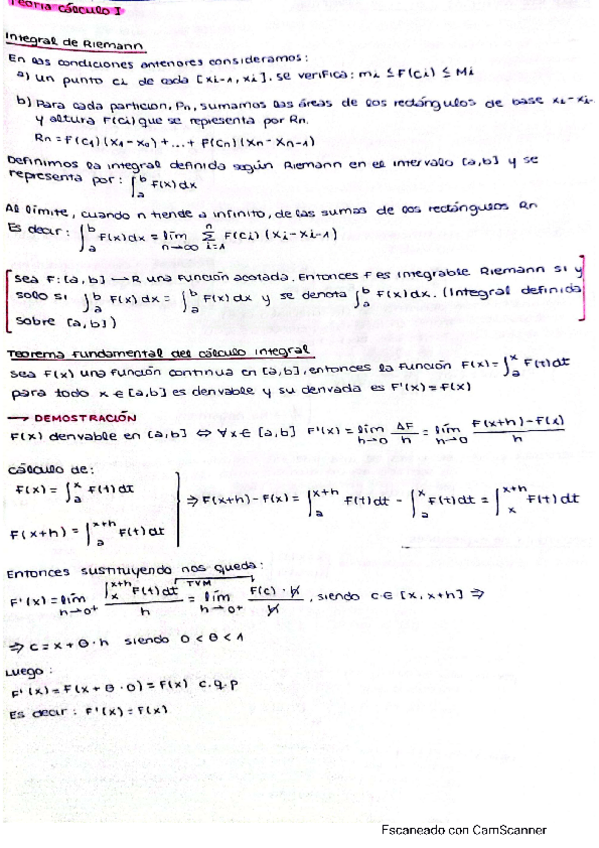 Teoría cálculo I
Integral de Riemann
En las condiciones anteriores consideramos:
a) Un punto ci de cada [xi-1, xi]. Se verifica: mi ≤ F(ci) ≤ Mi
b) Para cada particion, Pn, sumamos las áreas de los rectángulos de base xi-xi-
y altura F(ci) que se representa por Rn.
Rn = F(c1) (x1 - x0) + ... + F(cn) (xn - xn-1)
Definimos la integral definida según Riemann en el intervalo [a,b] y se
representa por: ∫_a^b F(x) dx
Al límite, cuando n tiende a infinito, de las sumas de los rectángulos Rn
Es decir: ∫_a^b F(x) dx = lím_{n→∞} Σ_{i=1}^n F(ci) (xi - xi-1)
Sea F: [a,b] → R una función acotada. Entonces f es integrable Riemann si y
solo si ∫_a^b F(x) dx = ∫_a^b F(x) dx y se denota ∫_a^b F(x) dx. (Integral definida
sobre [a,b])
Teorema fundamental del cálculo integral
Sea F(x) una función continua en [a,b], entonces la función F(x) = ∫_a^x F(t) dt
para todo x ∈ [a,b] es derivable y su derivada es F'(x) = F(x)
→ DEMOSTRACIÓN
F(x) derivable en [a,b] ⇔ ∀x ∈ [a,b] F'(x) = lím_{h→0} ΔF/h = lím_{h→0} (F(x+h) - F(x))/h
Cálculo de:
F(x) = ∫_a^x F(t) dt
⇒ F(x+h) - F(x) = ∫_a^{x+h} F(t) dt - ∫_a^x F(t) dt = ∫_x^{x+h} F(t) dt
F(x+h) = ∫_a^{x+h} F(t) dt
Entonces sustituyendo nos queda:
TVM
F'(x) = lím_{h→0+} (∫_x^{x+h} F(t) dt)/h = lím_{h→0+} (F(c) · h)/h, siendo c ∈ [x, x+h] ⇒
⇒ c = x + θ · h siendo 0 < θ < 1
Luego:
F'(x) = F(x + θ · 0) = F(x) c.q.p
Es decir: F'(x) = F(x)
Escaneado con CamScanner